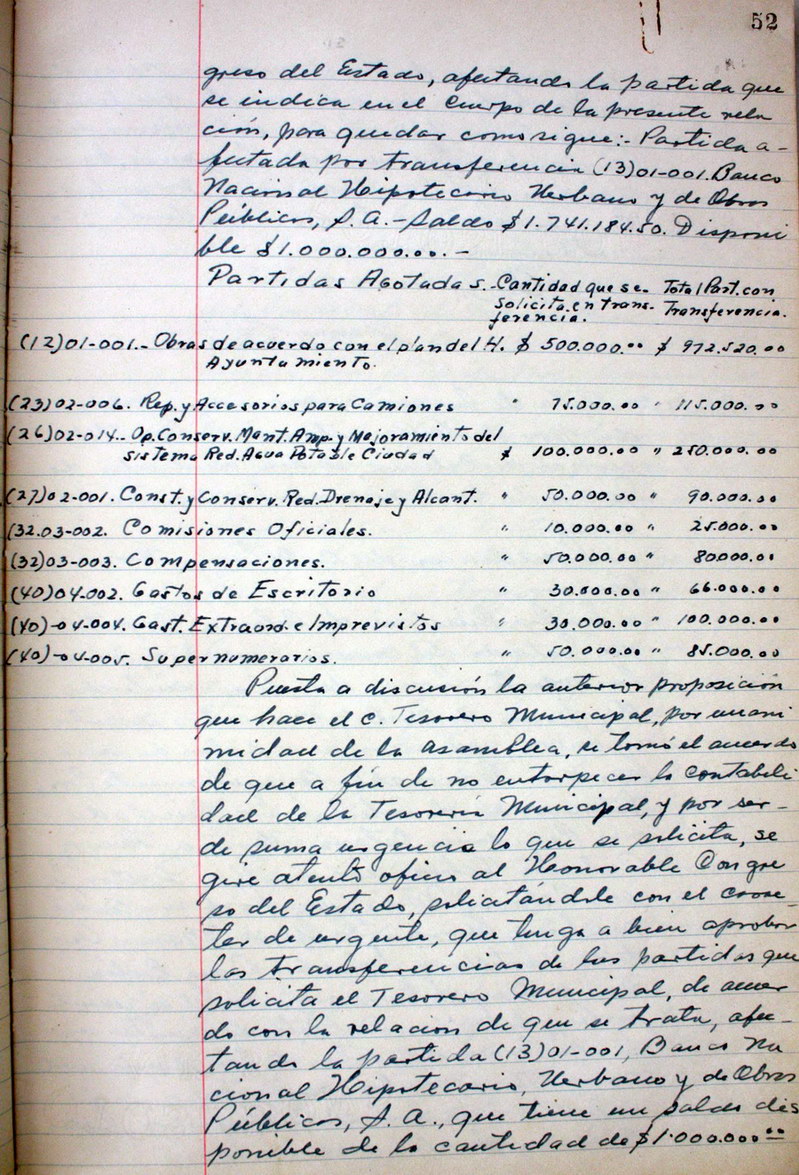 52
greso del Estado, afectando la partida que
se indica en el cuerpo de la presente rela
ción, para quedar como sigue:- Partida a-
fectada por transferencia (13)01-001. Banco
Nacional Hipotecario Urbano y de Obras
Públicas, S. A.- Saldo $1.741.184.50. Disponi
ble $1.000.000.00.-
Partidas Agotadas.- Cantidad que se- Total Part. con
solicita en trans- Transferencia.
ferencia.
(12)01-001.- Obras de acuerdo con el plan del H. $ 500.000.00 $ 972.520.00
Ayuntamiento.
(23)02-006. Rep. y Accesorios para Camiones " 75.000.00 " 115.000.00
(26)02-014.- Op. Conserv. Mant. Amp. y Mejoramiento del
sistema Red. Agua Potable Ciudad $ 100.000.00 " 250.000.00
(27)02-001. Const. y Conserv. Red. Drenaje y Alcant. " 50.000.00 " 90.000.00
(32.03-002. Comisiones Oficiales. " 10.000.00 " 25.000.00
(32)03-003. Compensaciones. " 50.000.00 " 80.000.00
(40)04-002. Gastos de Escritorio " 30.000.00 " 66.000.00
(40)-04-004. Gast. Extraord. e Imprevistos " 30.000.00 " 100.000.00
(40)-04-005. Supernumerarios. " 50.000.00 " 85.000.00
Puesta a discusión la anterior proposición
que hace el C. Tesorero Municipal, por unani
midad de la asamblea, se tomó el acuerdo
de que a fin de no entorpecer la contabili
dad de la Tesorería Municipal, y por ser-
de suma urgencia lo que se solicita, se
gire atento oficio al Honorable Congre
so del Estado, solicitándole con el carac-
ter de urgente, que tenga a bien aprobar
las transferencias de las partidas que
solicita el Tesorero Municipal, de acuer
do con la relación de que se trata, afec-
tando la partida (13)01-001, Banco Na
cional Hipotecario, Urbano y de Obras
Públicas, S. A., que tiene un saldo dis
ponible de la cantidad de $1.000.000.00